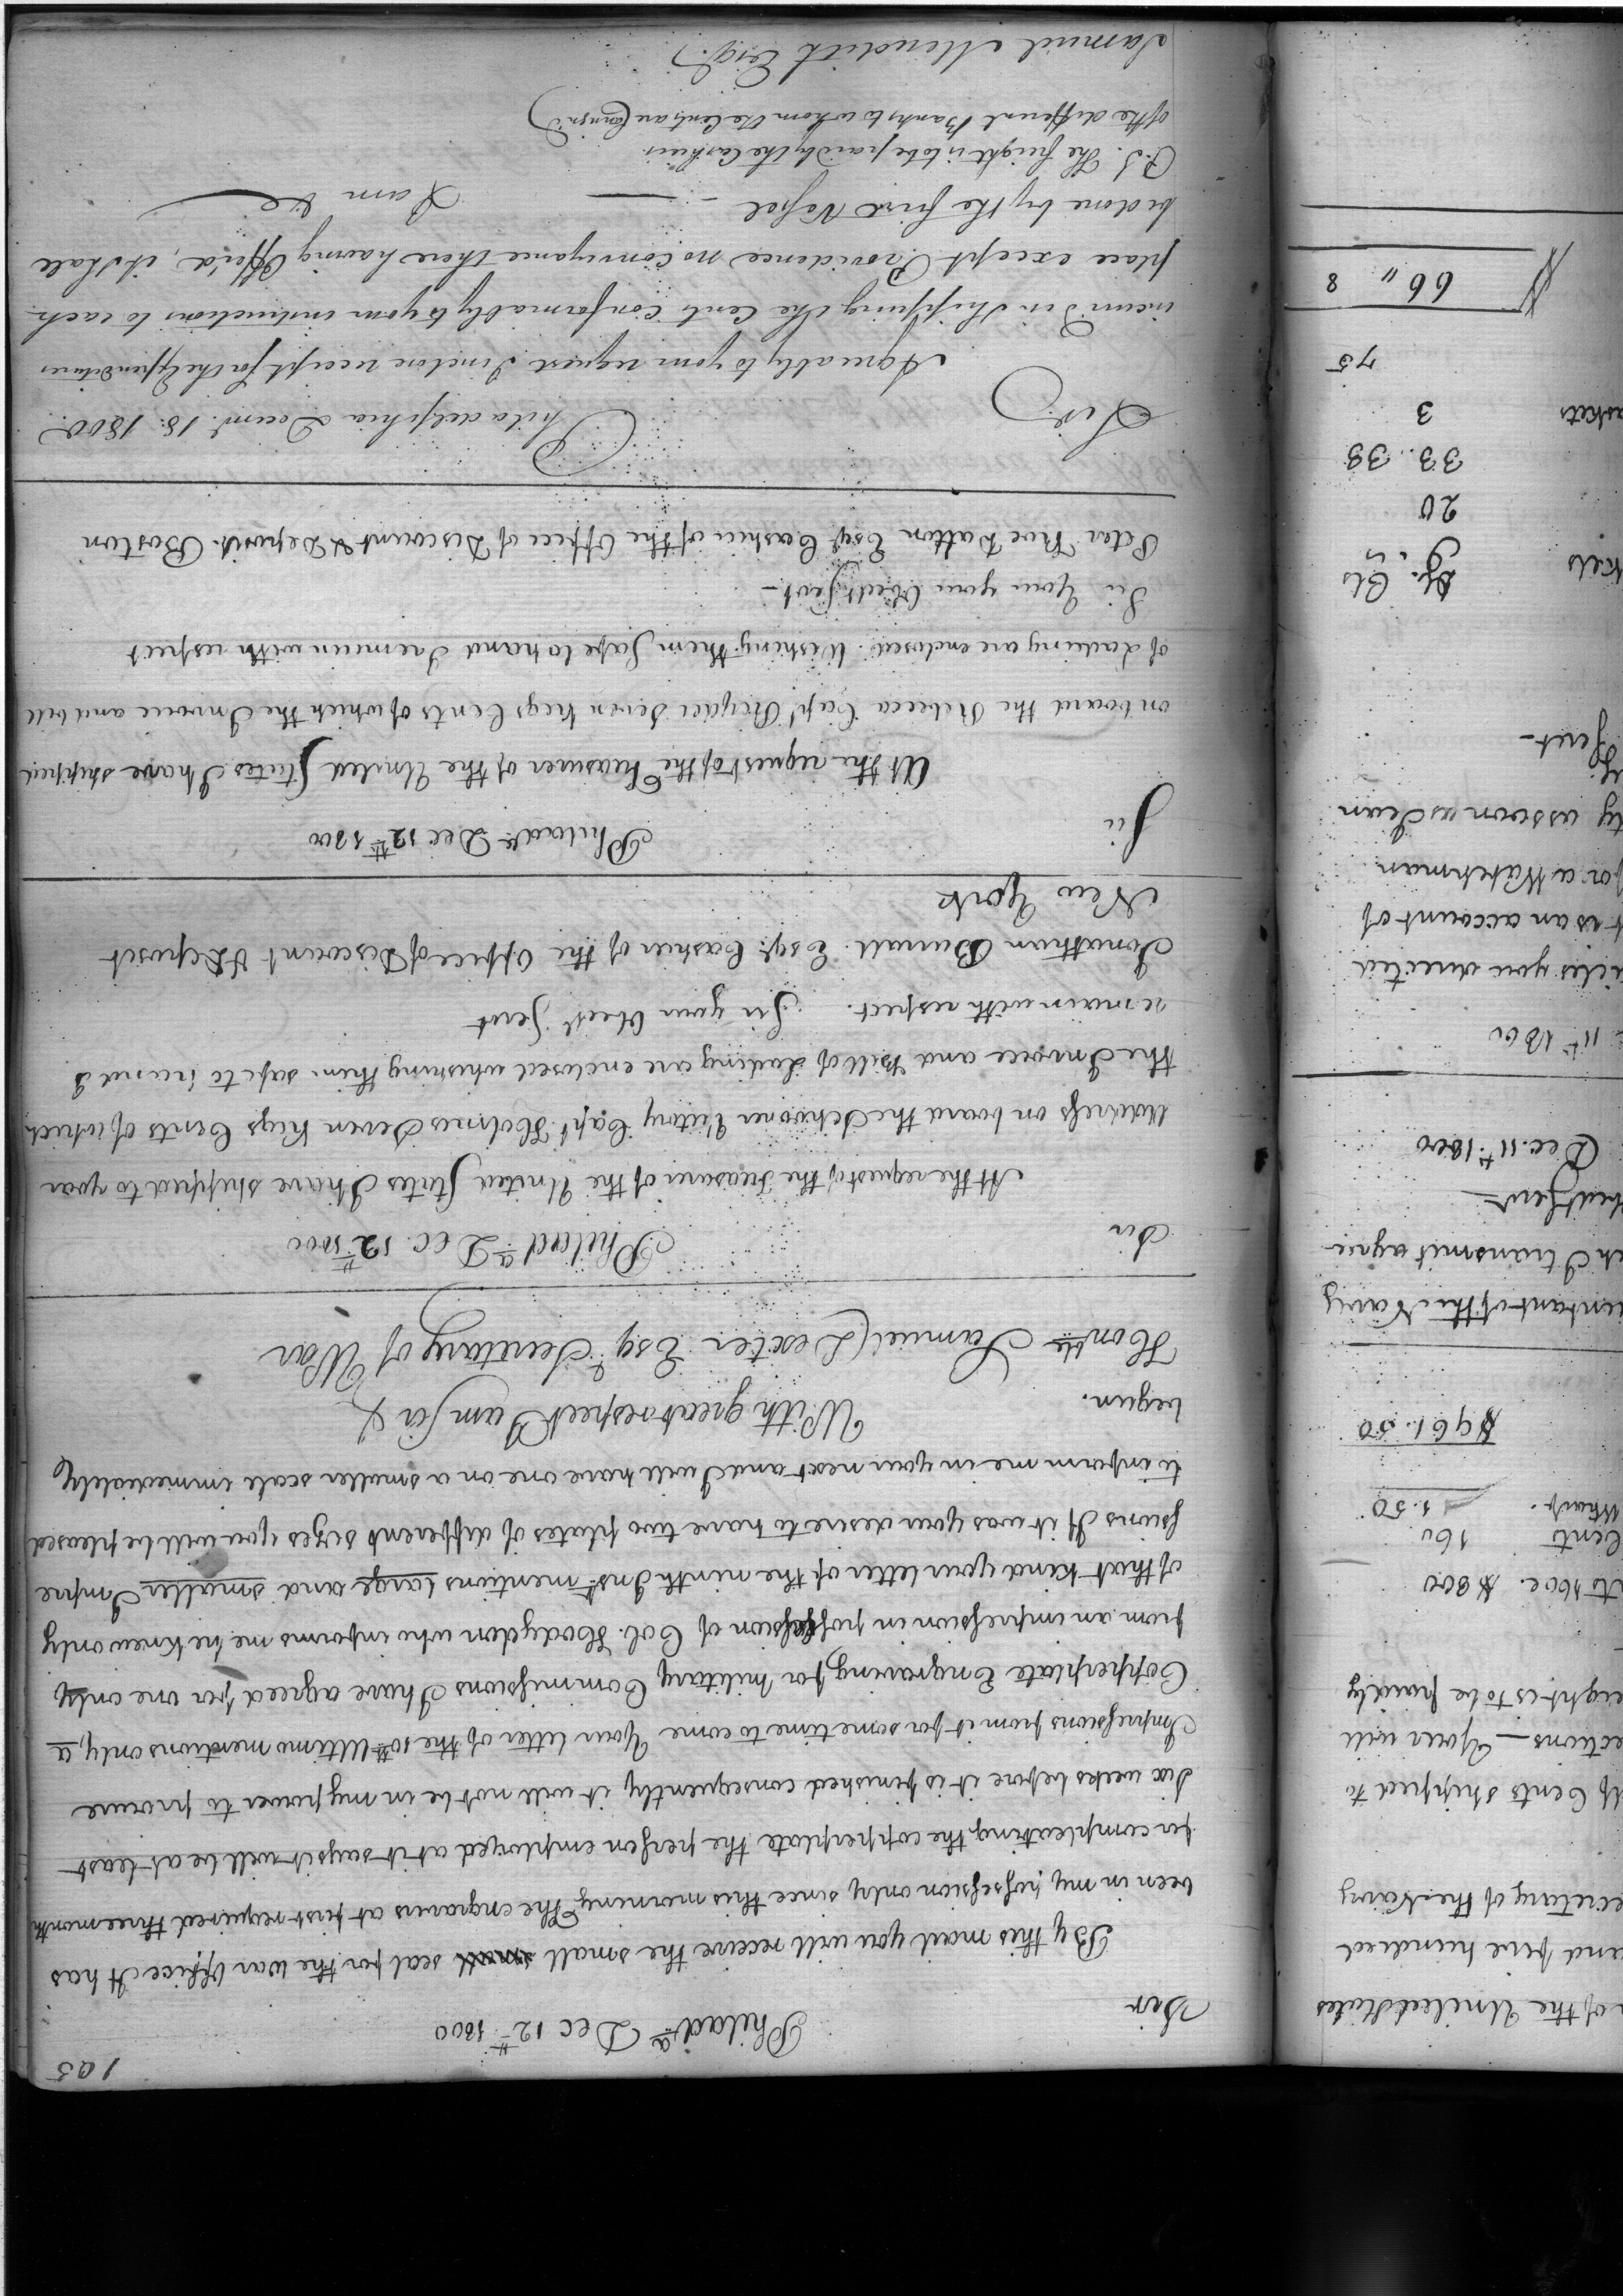 195
Philad.a Dec 12th 1800
Sir
By this mail you will receive the small seal for the War Office It has
been in my possession only since this morning. The engravers at first required three month
for compleating the copperplate the person employed at it says it will be at least
six weeks before it is finished consequently it will not be in my power to procure
Impressions from it for some time to come Your letter of the 10th Ultimo mentions only, a
Copperplate Engraving for Military Commissions I have agreed for one only
from an impression in possession of Col. Hodgdon who informs me he knew only
of that kind your letter of the ninth Inst. mentions large and smaller Impre
ssions If it was your desire to have two plates of different sizes you will be pleased
to inform me in your next and I will have one on a smaller scale immediately
begun.
With great respect I am Sir &
Honble Samuel Dexter Esqr Secretary of War
Philad.a Dec. 12th 1800
Sir
At the request of the Treasurer of the United States I have shipped to your
Address on board the Schooner Victory Capt. Holmes Seven Kegs Cents of which
the Invoice and Bill of Lading are enclosed whishing them safe to hand I
remain with respect. Sir your Obedt Servt
Jonathan Burrall Esqr. Cashier of the Office of Discount & Deposit
New York
Philada Dec 12th 1800
Sir
At the request of the Treasurer of the United States I have shipped
on board the Rebecca Capt Snyder Seven Kegs Cents of which the Invoice and bill
of Lading are enclosed. Wishing them Safe to hand I remain with respect
Sir Your your Obedt Servt -
Peter Roe Dalton Esqr. Cashier of the Office of Discount & Deposit. Boston
Philadelphia Decemr. 18. 1800.
Sir
Agreeably to your request I inclose receipt for the Expenditures
incurr'd in Shipping the Cents conformably to your instructions to each
place except Providence no conveyance there having Offer'd, it shall
be done by the first Vessel - I am &c
P.S. The freight is to be paid by the Cashiers
of the different Banks to whom the Cents are Consign'd
Samuel Meredith Esqr.
of the United States
and five hundred
ecretary of the Navy
Cents shipped to
ections — You will
eight is to be paid by
$800
Cents 160
Wharf. 1.50
$961.50
entant of the Navy
ch I transmit agree
Servt
Dec. 11th 1800
11th 1800
icles you directed
t is an account of
for a Watchman
ty as soon as I can
Servt -
$. Cts
20
33. 33
askets 3
75
$ 66 " 8